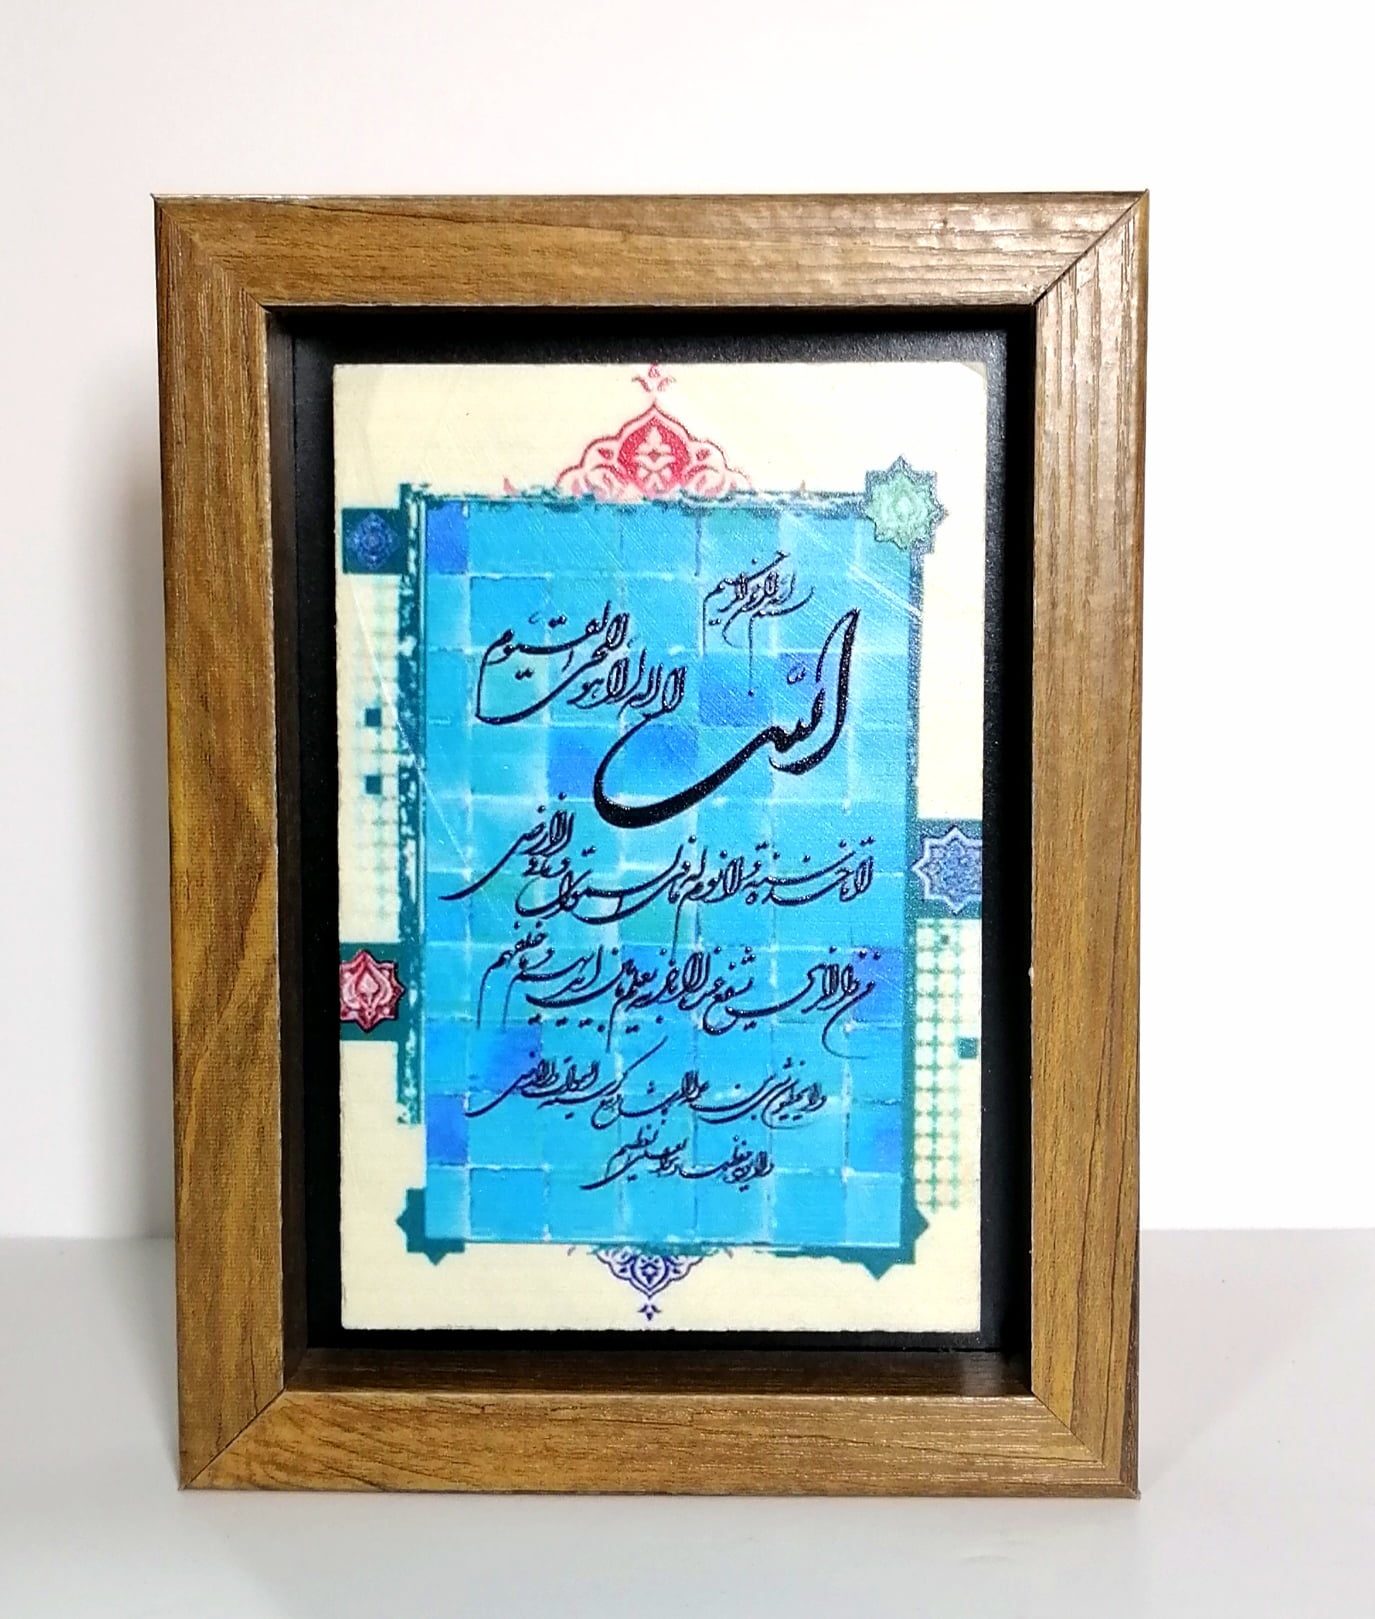 بسم الله الرحمن الرحیم
الله لا اله الا هو الحی القیوم
لا تاخذه سنة و لا نوم له ما فی السموات و ما فی الارض
من ذا الذی یشفع عنده الا باذنه یعلم ما بین ایدیهم و ما خلفهم
و لا یحیطون بشیء من علمه الا بما شاء وسع کرسیه السموات و الارض
و لا یوده حفظهما و هو العلی العظیم